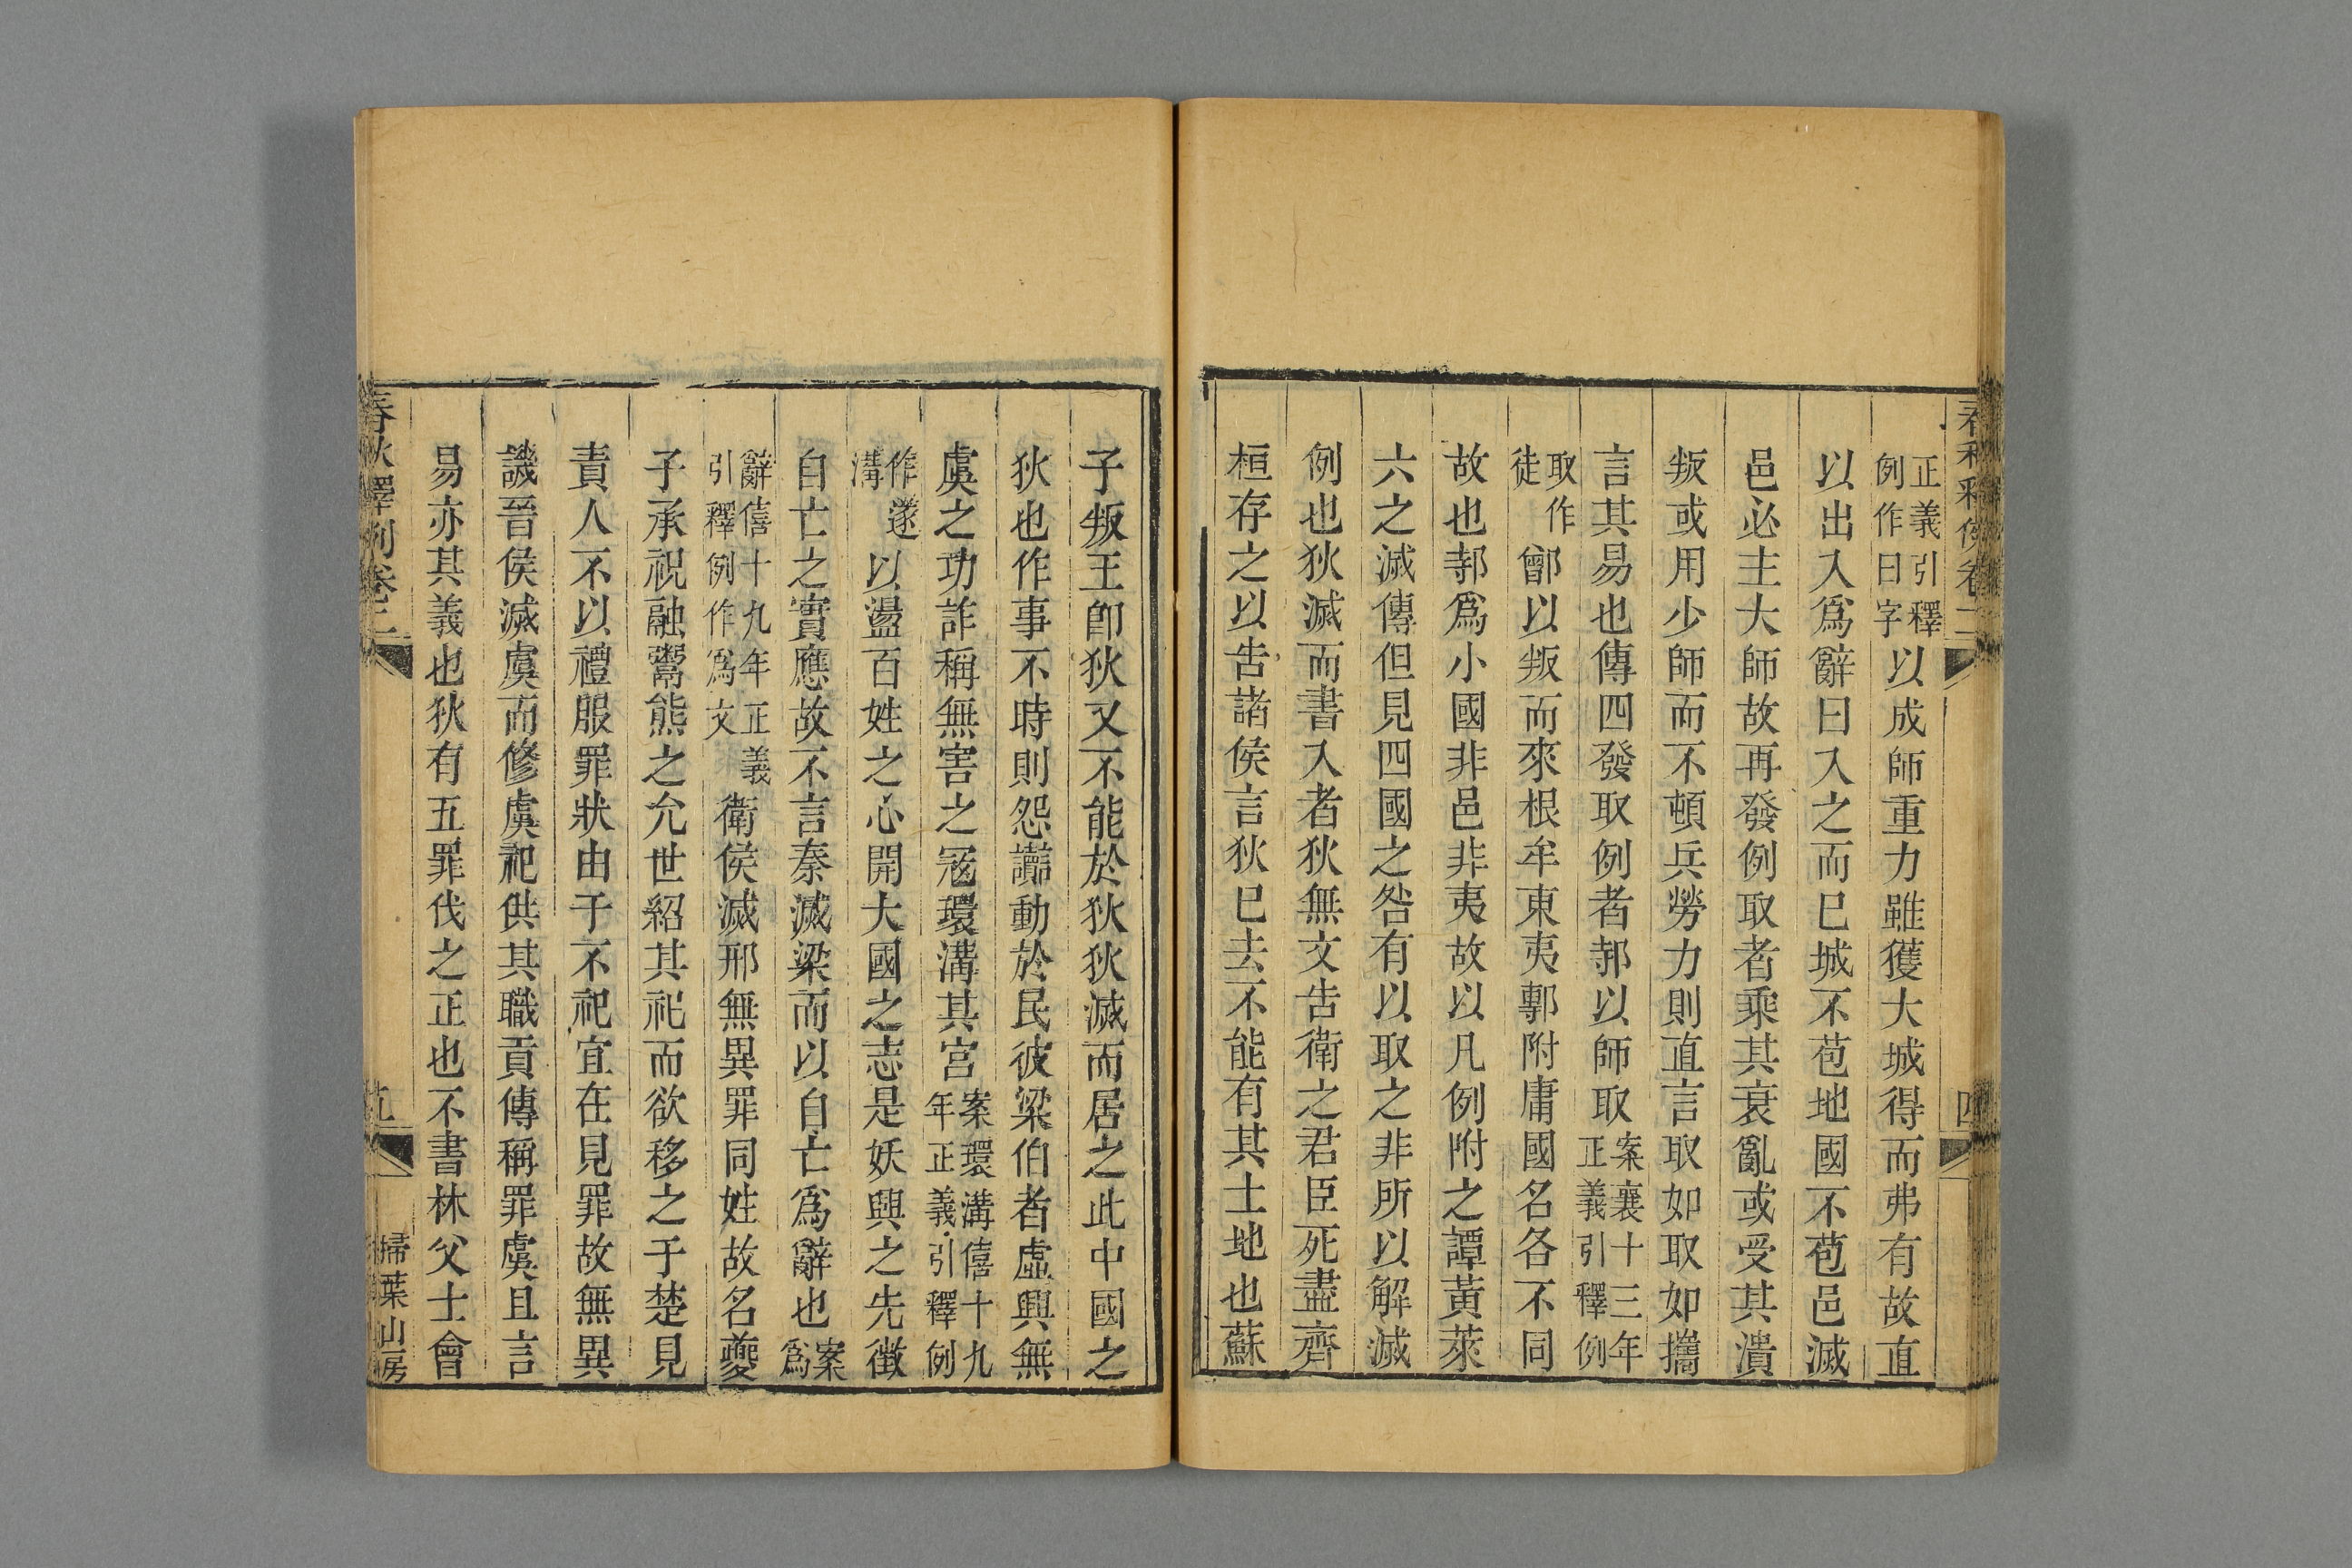 正義引釋例作日字以成師重力雖獲大城得而弗有故直
以出入爲辭曰入之而已城不苞地國不苞邑滅
邑必主大師故再發例取者乘其衰亂或受其潰
叛或用少師而不頓兵勞力則直言取如取如攜
言其易也傳四發取例者邿以師取案襄十三年正義引釋例
取作徒鄫以叛而來根牟東夷鄟附庸國名各不同
故也邿爲小國非邑非夷故以凡例附之譚黃萊
六之滅傳但見四國之咎有以取之非所以解滅
例也狄滅而書入者狄無文告衛之君臣死盡齊
桓存之以告諸侯言狄已去不能有其土地也蘇
子叛王卽狄又不能於狄狄滅而居之此中國之
狄也作事不時則怨讟動於民彼梁伯者虛興無
虞之功詐稱無害之寇環溝其宮案環溝僖十九年正義引釋例
作遂溝以盪百姓之心開大國之志是妖與之先徵
自亡之實應故不言秦滅梁而以自亡爲辭也案爲
辭僖十九年正義引釋例作爲文衛侯滅邢無異罪同姓故名夔
子承祝融鬻熊之允世紹其祀而欲移之于楚見
責人不以禮服罪狀由于不祀宜在見罪故無異
譏晉侯滅虞而修虞祀供其職貢傳稱罪虞且言
易亦其義也狄有五罪伐之正也不書林父士會
春秋釋例卷二
掃葉山房